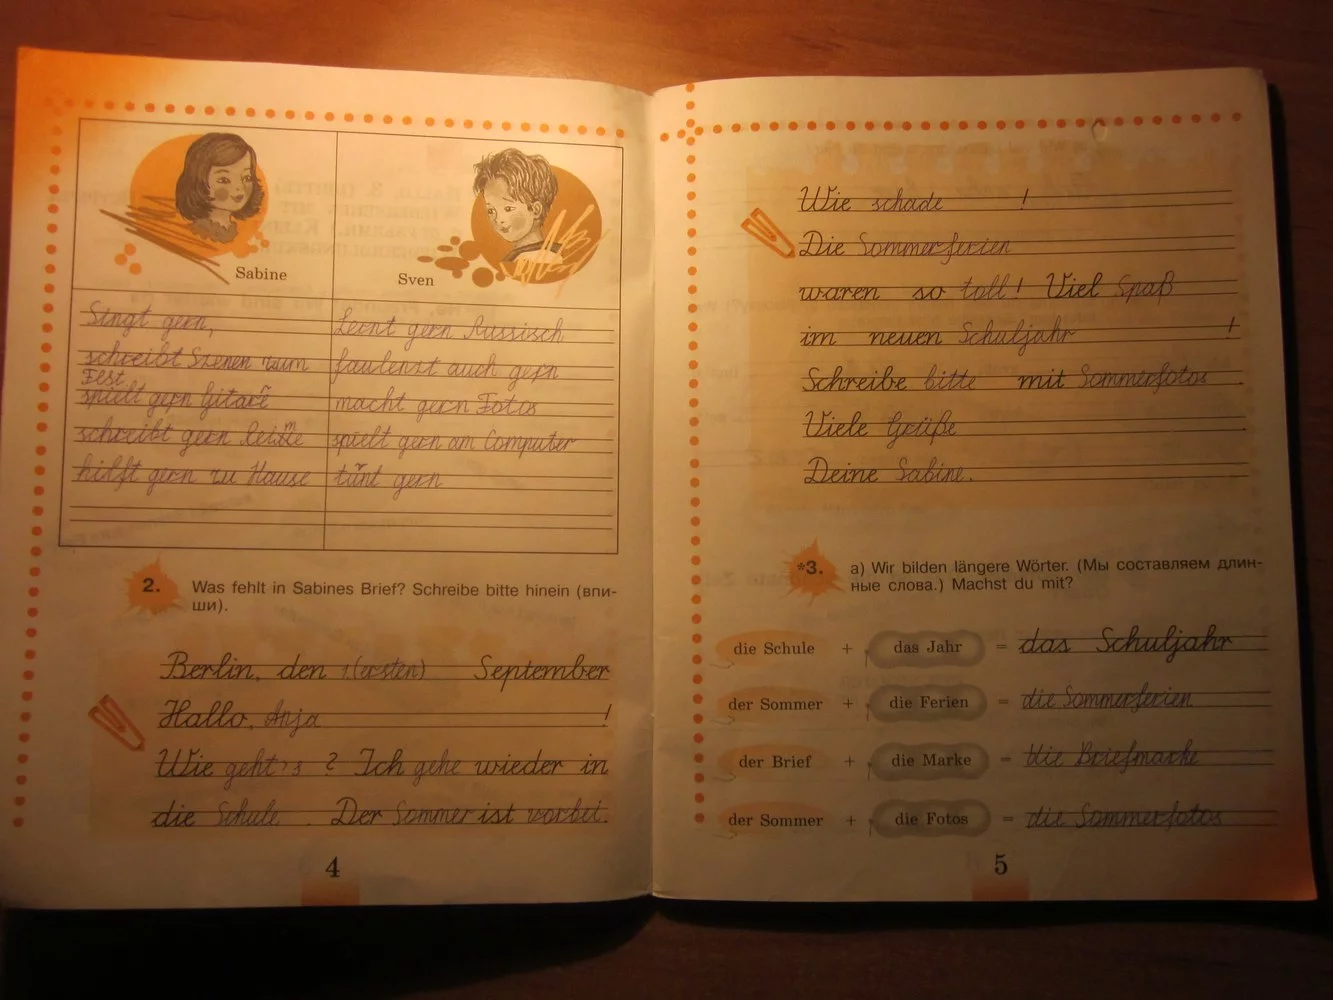 Sabine
Sven
Singt gern,
schreibt Szenen zum
Fest
spielt gern Gitare
schreibt gern
hilft gern zu Hause
Lernt gern Russisch
faulenzt auch gern
macht gern Fotos
spielt gern am Computer
gern
2. Was fehlt in Sabines Brief? Schreibe bitte hinein (впи-
ши).
Berlin, den 1.(ersten) September
Hallo, Anja !
Wie geht's ? Ich gehe wieder in
die Schule . Der Sommer ist vorbei.
4
Wie schade !
Die Sommerferien
waren so toll! Viel Spaß
im neuen Schuljahr !
Schreibe bitte mit Sommerfotos .
Viele Grüße
Deine Sabine.
*3. a) Wir bilden längere Wörter. (Мы составляем длин-
ные слова.) Machst du mit?
die Schule + das Jahr = das Schuljahr
der Sommer + die Ferien = die Sommerferien
der Brief + die Marke = die Briefmarke
der Sommer + die Fotos = die Sommerfotos
5